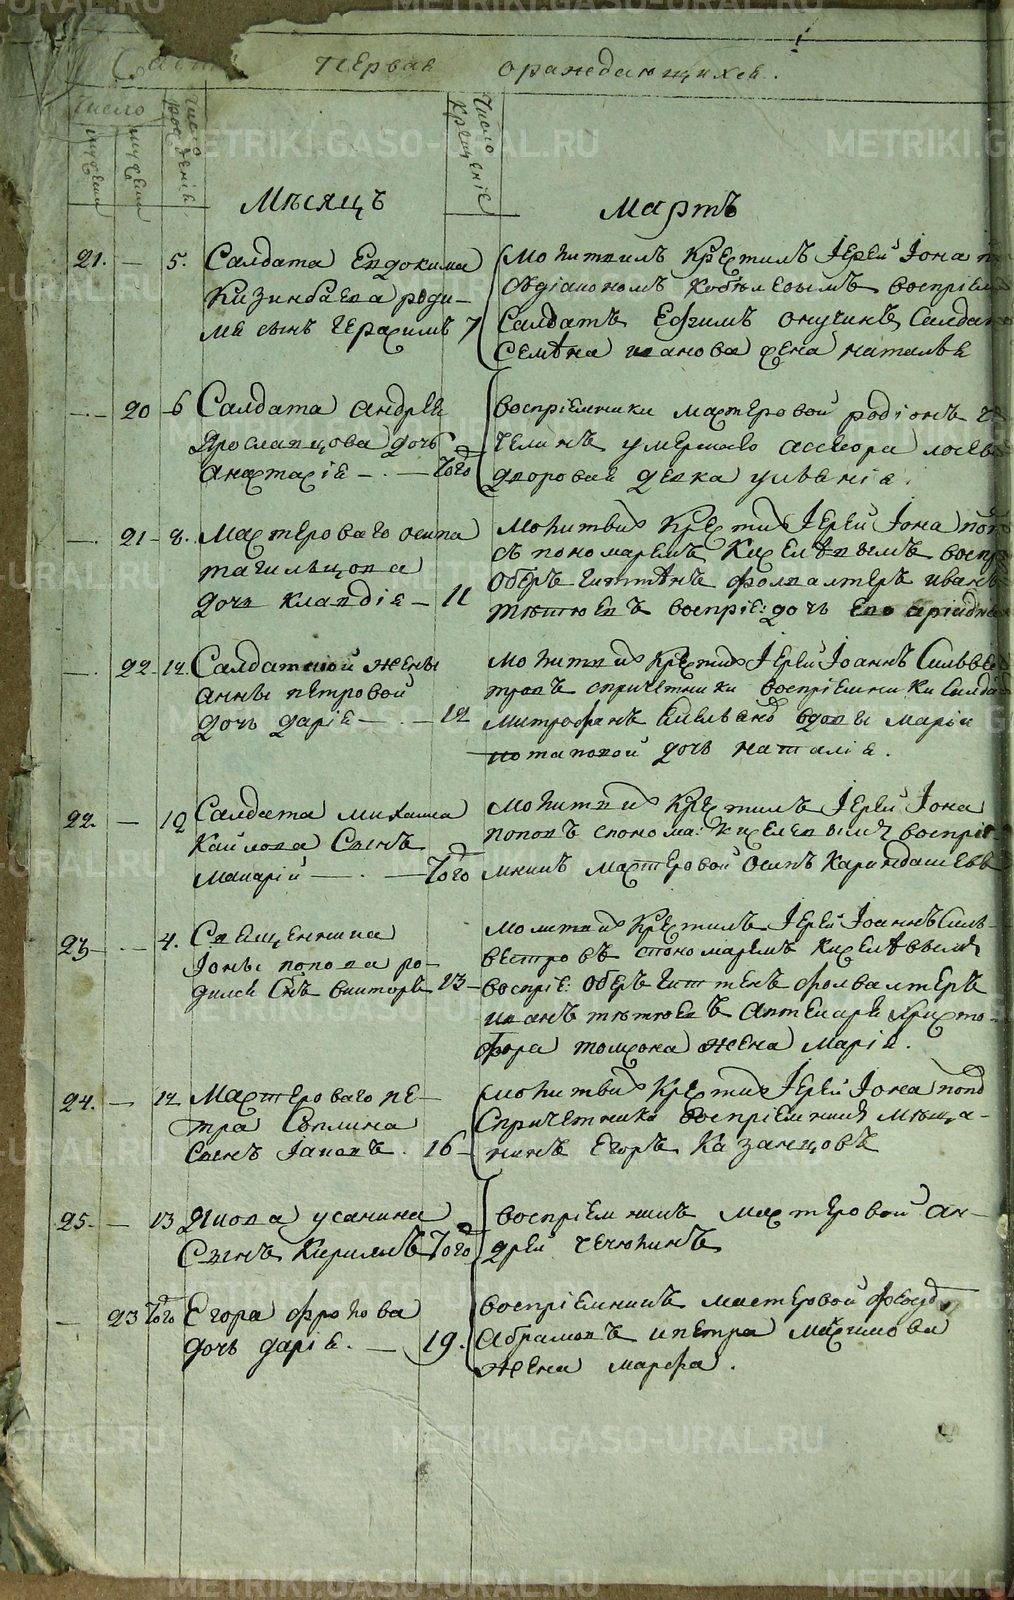 Часть первая о раждающихся.
число
мужеск
женск
число рождения
Число Крещение
Мѣсяцъ Мартъ
21. — 5. Салдата Евдокима
Кизинбаева роди-
ся сынъ Герасимъ 7
Молитвилъ Крестилъ Іерей Іона
съ діакономъ воспріем
Салдатъ Ефимъ Онучинъ Салдата
Семена иванова жена наталья
— 20 6 Салдата Андрея
Ярославцова дочь
анастасія — Того
воспріемники мастеровой родіонъ
умершаго ассесора
дворовая девка
— 21 8. Мастероваго осипа
тагильцова
дочь клавдія — 11
Молитви Крести Іерей Іона поп
съ пономаремъ Киселевымъ воспр
Оберъ гиттенъ фервалтеръ иванъ
воспріе: дочь его
— 22 12. Салдатской жены
анны петровой
дочь дарія — 12
Молитви Крести Іерей Іоаннъ Сильвес
тровъ спричетники воспріемники Салда
Митрофанъ вдовы маріи
потаповой дочь наталія.
22. — 12 Салдата михаила
Кайлова Сынъ
макарій — Того
Молитви Крестилъ Іерей Іона
поповъ спонома: киселевымъ воспріе
мникъ мастеровой осипъ Карандашевъ
23 — 4. Священника
Іоны попова ро-
дился Снъ викторъ 13
Молитви Крестилъ Іерей Іоаннъ Силь-
вестровъ спономаремъ Киселевымъ
воспріе: Оберъ гиттенъ фервалтеръ
иванъ аптекаря Христо-
фора томсона жена Марія.
24. — 12 Мастероваго пе-
тра Сѣплина
Сынъ Іаковъ. 16
Молитви Крести Іерей Іона попо
Спричетники воспріемникъ мѣща-
нинъ Егоръ Казанцовъ
25. — 13 Якова усанина
Сынъ Кирилъ Того
воспріемникъ мастеровой ан-
дрей
— 23 Того Егора фролова
дочь дарія. — 19.
воспріемникъ мастеровой
Абрамовъ и петра максимова
жена марфа.
METRIKI.GASO-URAL.RU